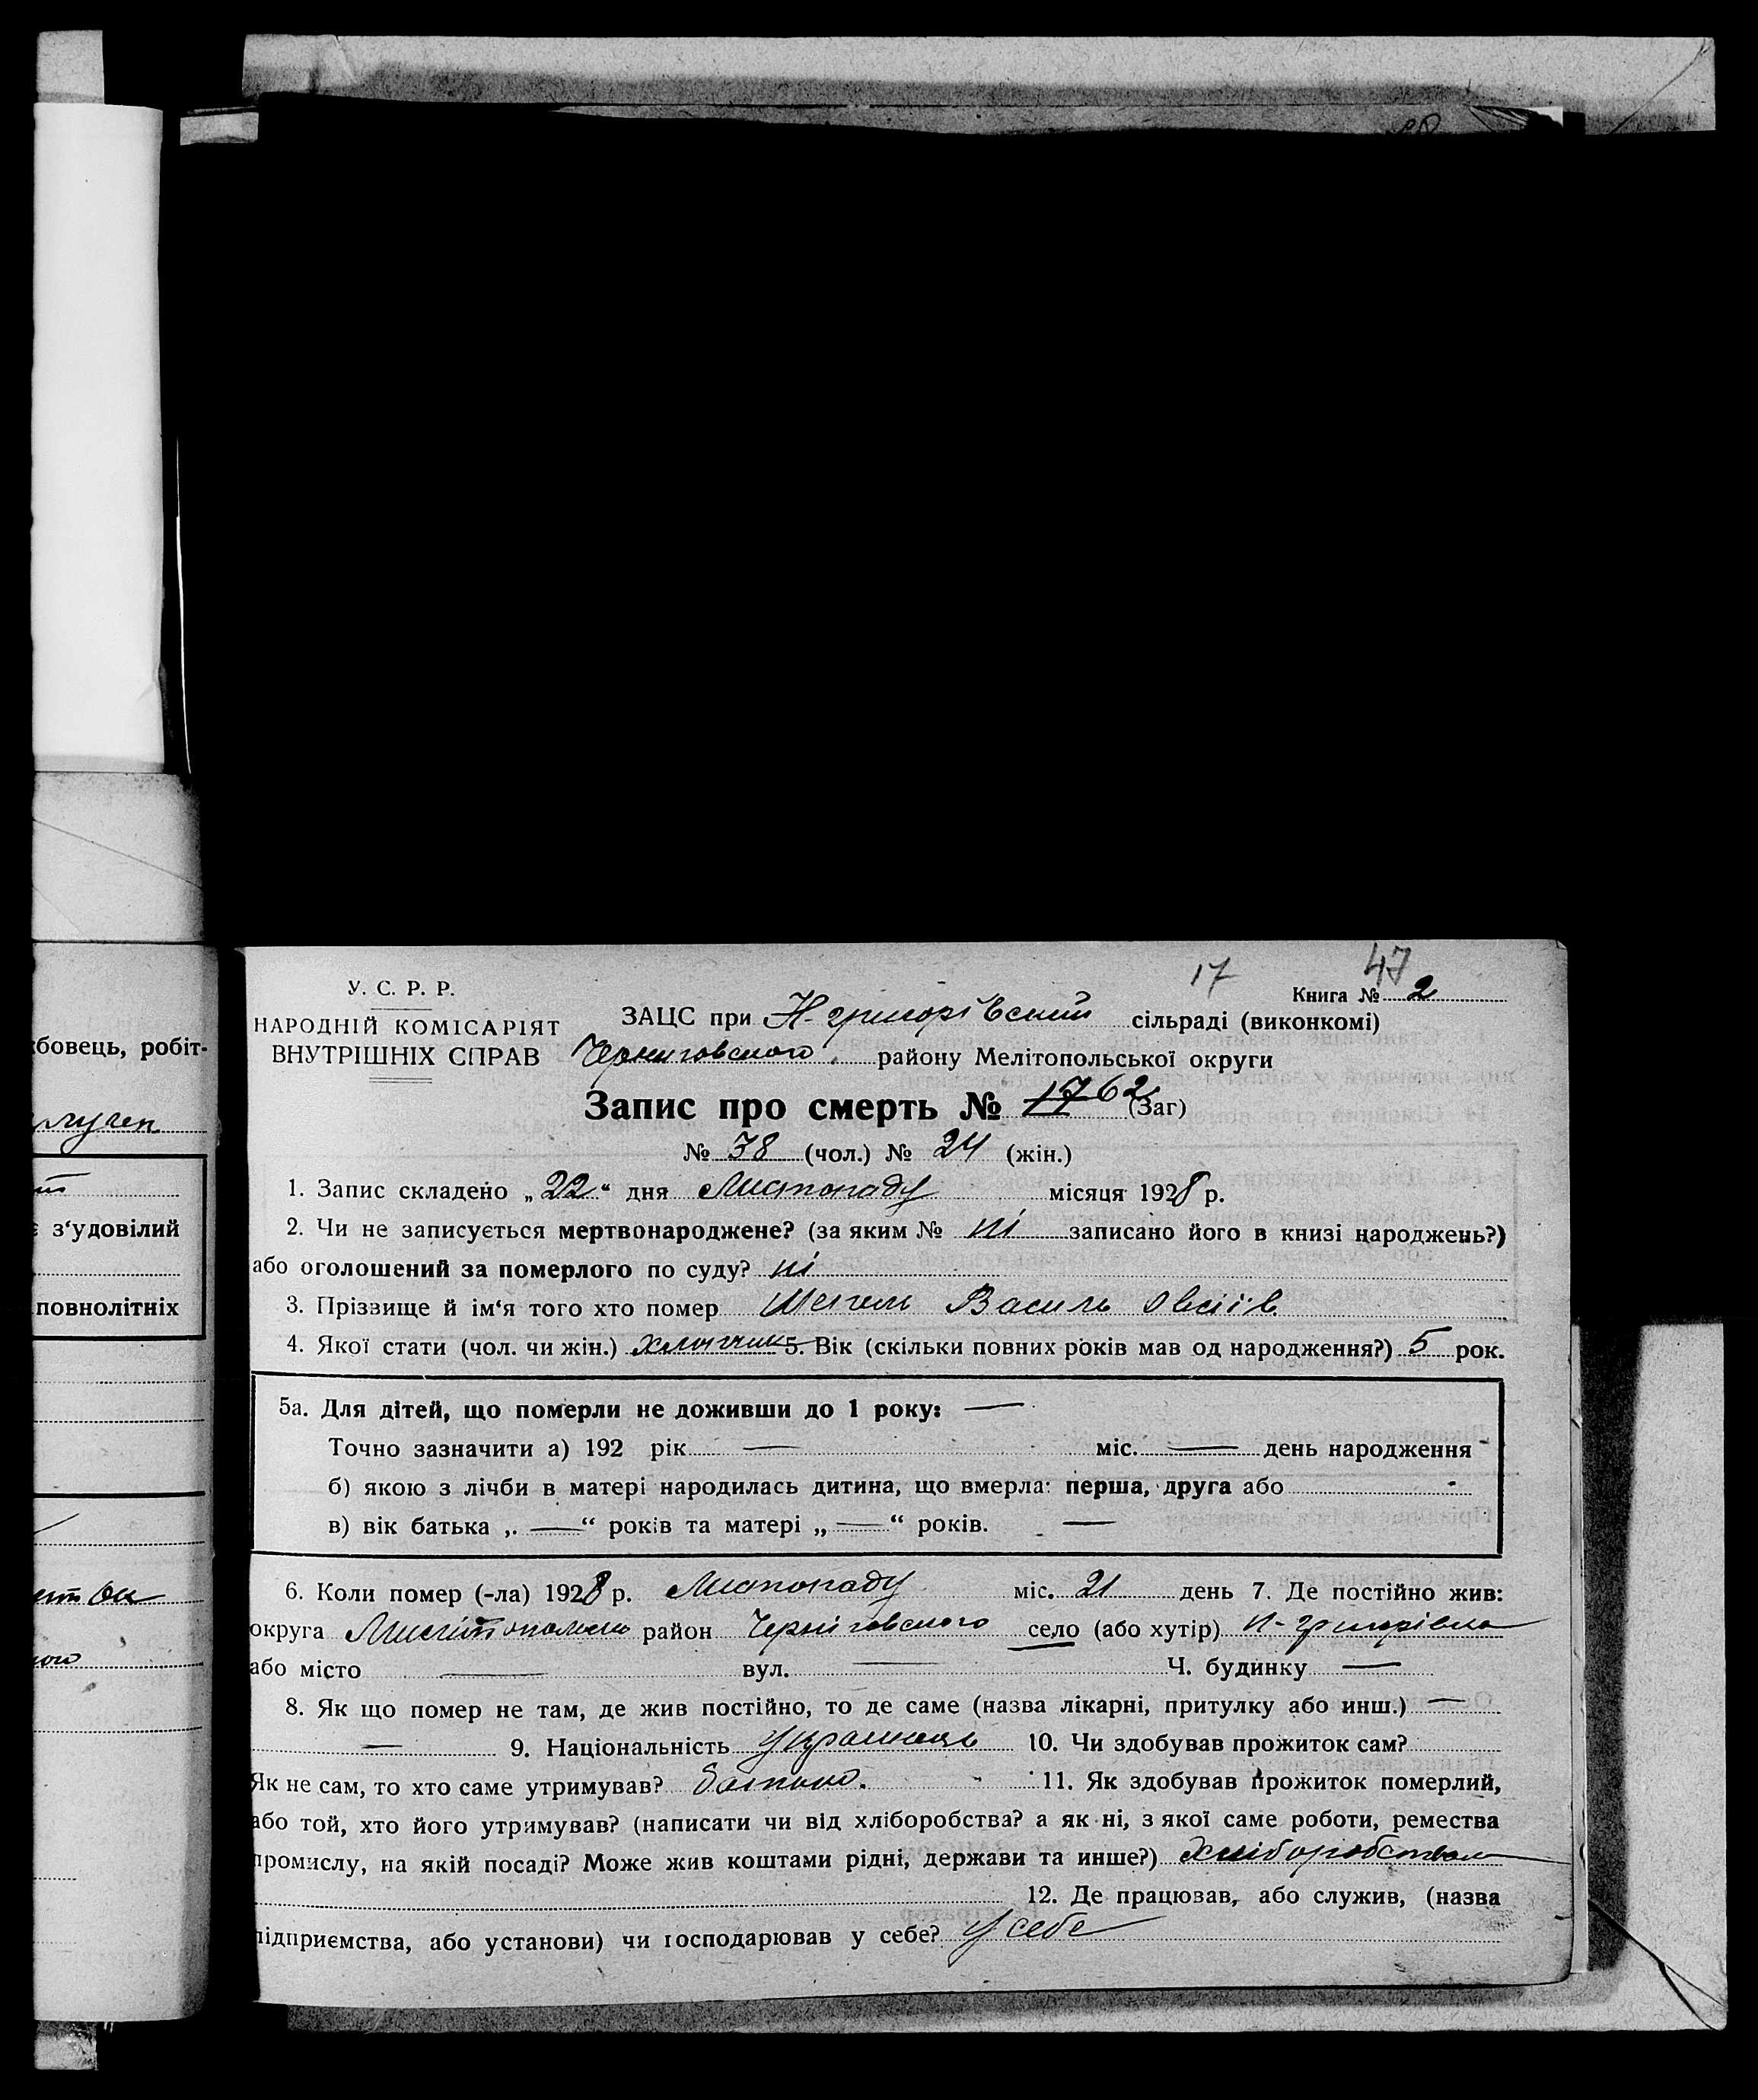 бовець, робіт-
з‘удовілий
повнолітніх
17 47
У. С. Р. Р.
Книга № 2
НАРОДНІЙ КОМІСАРІЯТ
ВНУТРІШНІХ СПРАВ
ЗАЦС при Н-григорівский сільраді (виконкомі)
Черниговского району Мелітопольської округи
Запис про смерть № 62 (Заг)
№ 38 (чол.) № 24 (жін.)
1. Запис складено „22“ дня Листопаду місяця 1928 р.
2. Чи не записується мертвонароджене? (за яким № ні записано його в книзі народжень?)
або оголошений за померлого по суду? ні
3. Прізвище й ім‘я того хто помер Василь Овсіїв
4. Якої стати (чол. чи жін.) хлопчик 5. Вік (скільки повних років мав од народження?) 5 рок.
5а. Для дітей, що померли не доживши до 1 року: —
Точно зазначити а) 192 рік — міс. — день народження -
б) якою з лічби в матері народилась дитина, що вмерла: перша, друга або -
в) вік батька „ — “ років та матері „ — “ років. —
6. Коли помер (-ла) 1928 р. Листопаду міс. 21 день 7. Де постійно жив:
округа район Черніговского село (або хутір) Н-григорівка
або місто — вул. — Ч. будинку —
8. Як що помер не там, де жив постійно, то де саме (назва лікарні, притулку або инш.) —
— 9. Національність Українець 10. Чи здобував прожиток сам?
Як не сам, то хто саме утримував? батько. 11. Як здобував прожиток померлий,
або той, хто його утримував? (написати чи від хліборобства? а як ні, з якої саме роботи, ремества
промислу, на якій посаді? Може жив коштами рідні, держави та инше?) хліборобством
12. Де працював, або служив, (назва
підприємства, або установи) чи господарював у себе? У себе